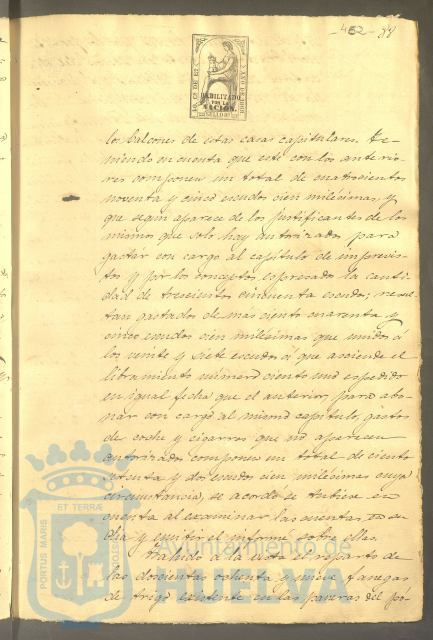 452-34
HABILITADO
POR LA
NACION.
los balcones de estas casas capitulares. Te-
niendo en cuenta que este con los anterio-
res componen un total de cuatrocientos
noventa y cinco escudos cien milésimas, y
que segun aparece de los justificantes de los
mismos que solo hay autorizados para
gastar con cargo al capítulo de imprevis-
tos y por los conceptos espresados la canti-
dad de trescientos cincuenta escudos, resul-
tan gastados de mas ciento cuarenta y
cinco escudos cien milésimas que unidos á
los veinte y siete escudos á que asciende el
libramiento número ciento uno espedido
en igual fecha que el anterior, para abo-
nar con cargo al mismo capítulo, gastos
de coche y cigarros que no aparecen
autorizados componen un total de ciento
setenta y dos escudos cien milésimas cuya
circunstancia, se acordó se tubiese en
cuenta al examinar las cuentas en su
dia y emitir el informe sobre ellas.
Traido á la vista el reparto de
las doscientas ochenta y nueve fanegas
de trigo existente en las paneras del pó-
PORTUS MARIS ET TERRÆ CUSTODIA
Ayuntamiento de
HUELVA